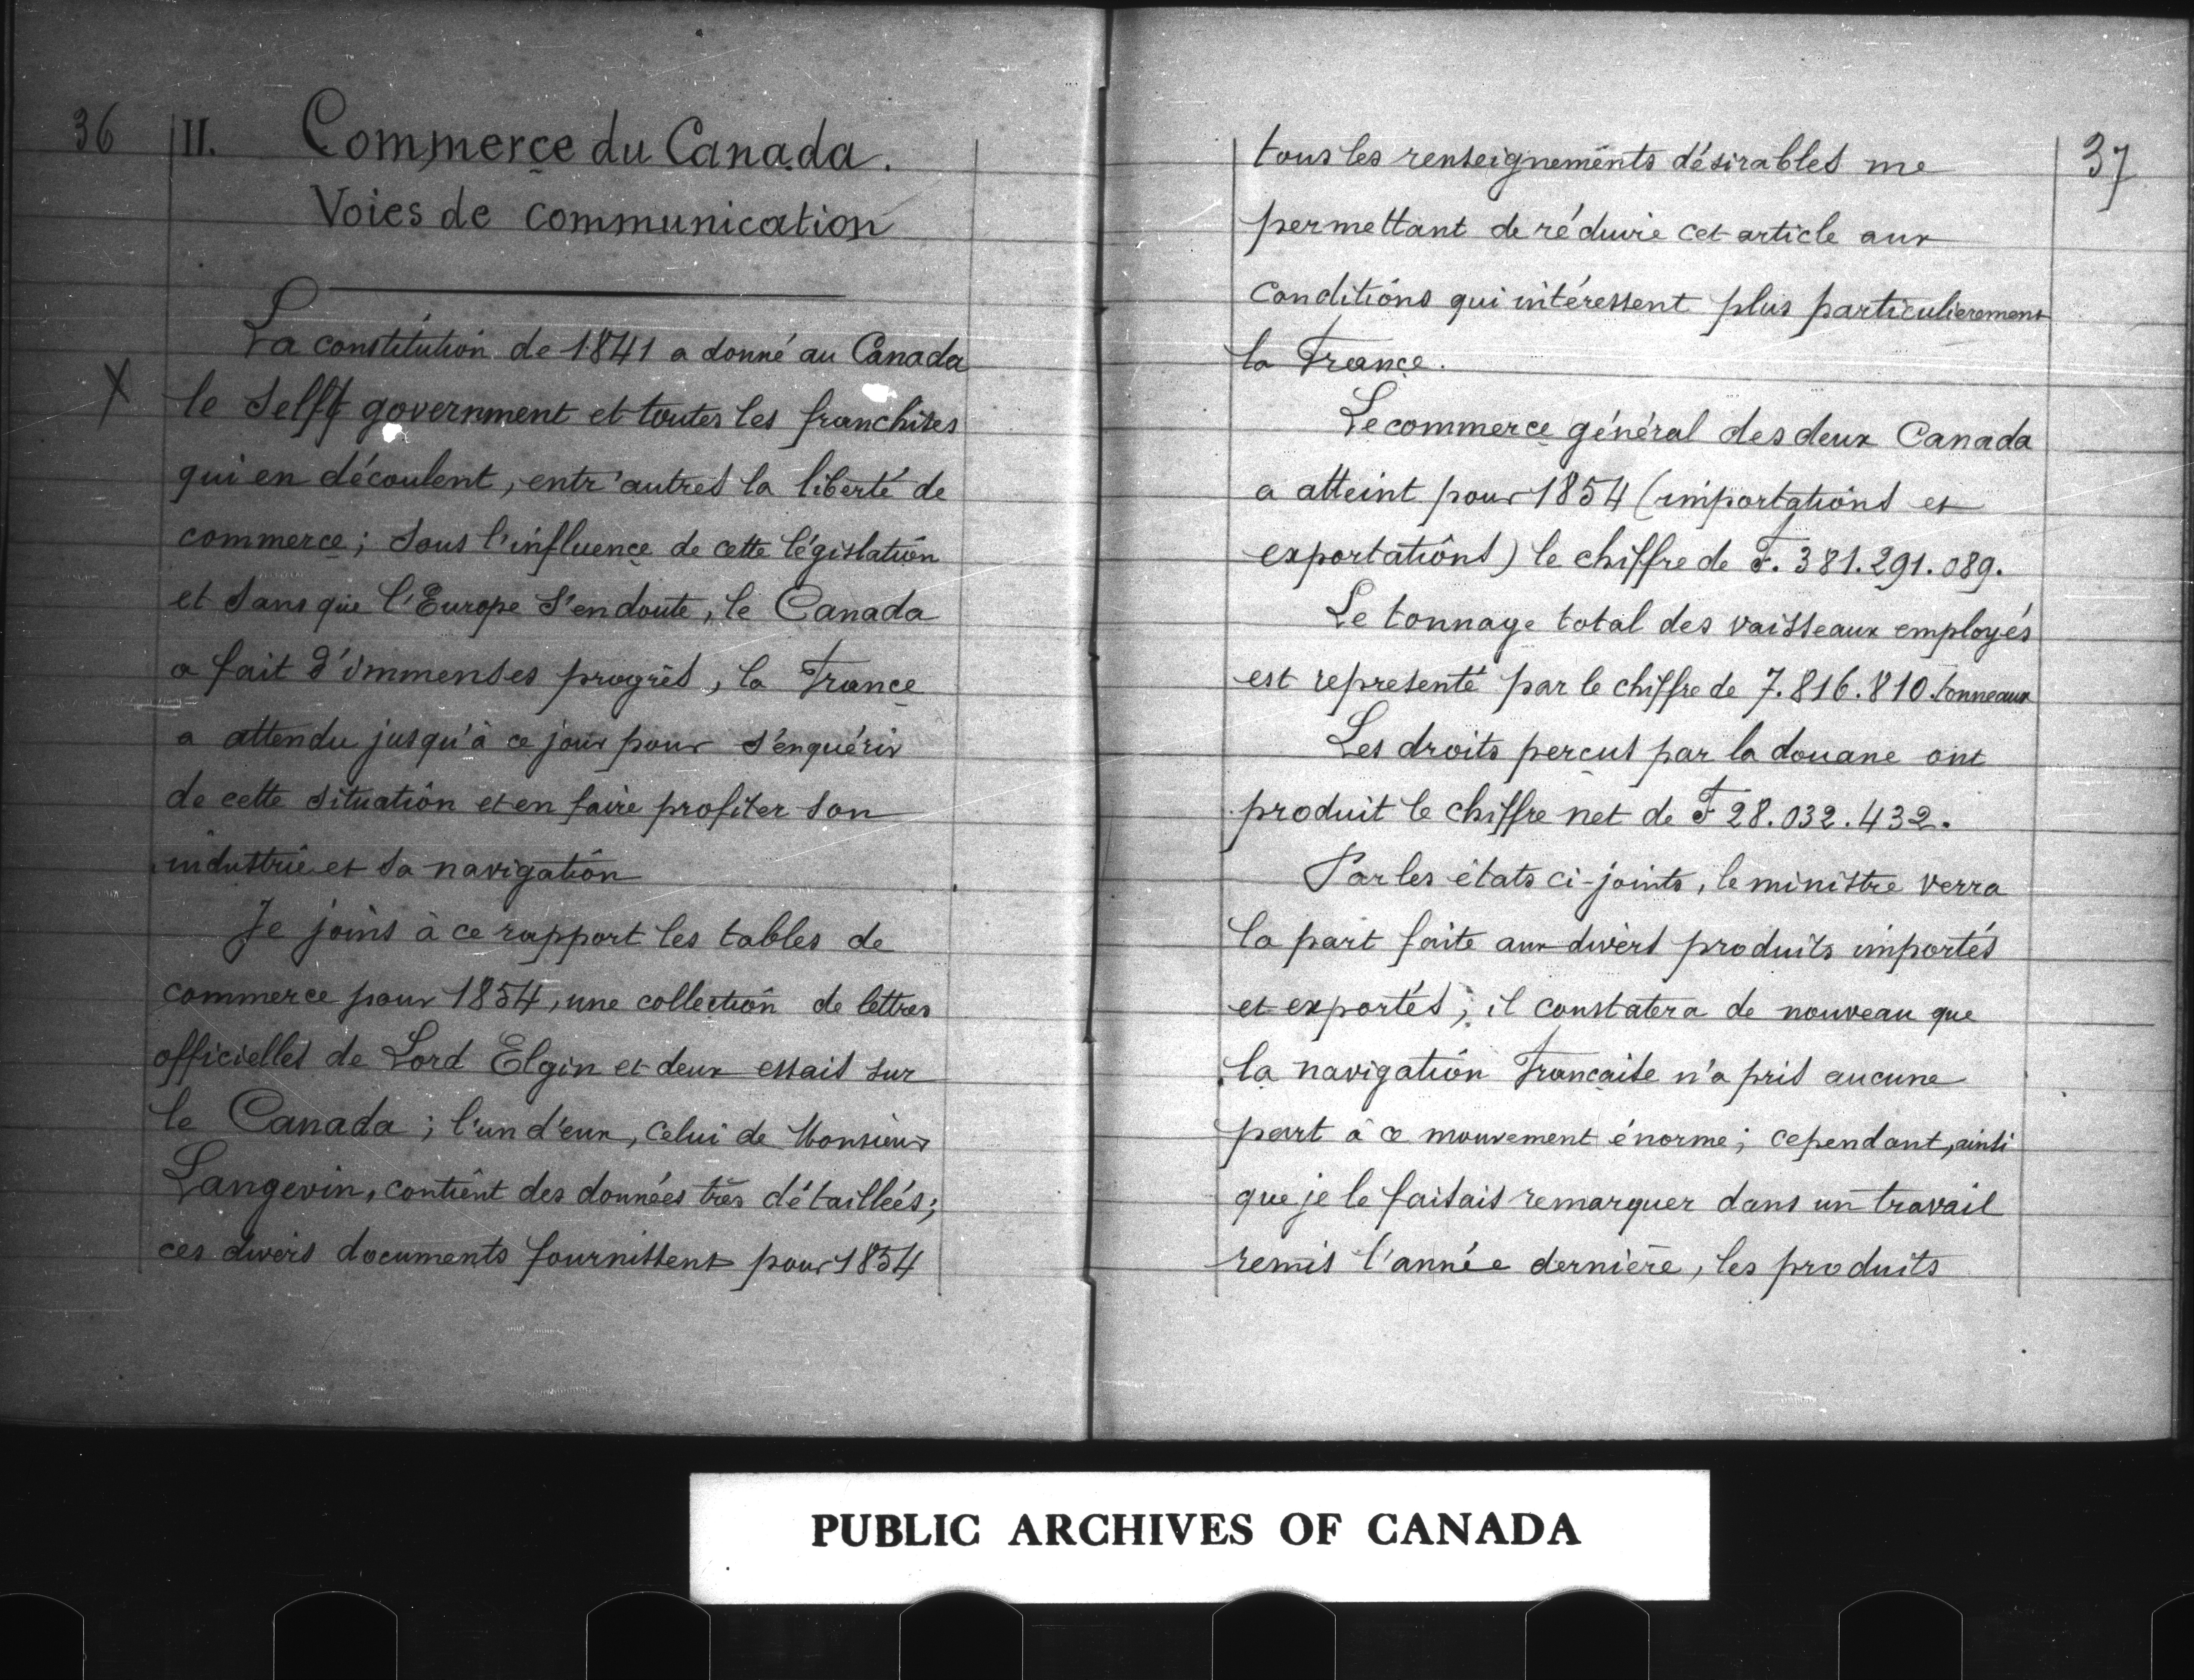 36
II. Commerce du Canada.
Voies de communication
La constitution de 1841 a donné au Canada
X le Self government et toutes les franchises
qui en découlent, entr'autres la liberté de
commerce; sous l'influence de cette législation
et sans que l'Europe s'en doute, le Canada
a fait d'immenses progrès, la France
a attendu jusqu'à ce jour pour s'enquérir
de cette situation et en faire profiter son
industrie et sa navigation
Je joins à ce rapport les tables de
commerce pour 1854, une collection de lettres
officielles de Lord Elgin et deux essais sur
le Canada; l'un d'eux, celui de Monsieur
Langevin, contient des données très détaillées;
ces divers documents fournissent pour 1854
37
tous les renseignements désirables me
permettant de réduire cet article aux
conditions qui intéressent plus particulierement
la France.
Le commerce général des deux Canada
a atteint pour 1854 (importations et
exportations) le chiffre de F. 381.291.089.
Le tonnage total des vaisseaux employés
est representé par le chiffre de 7.816.810 tonneaux
Les droits perçus par la douane ont
produit le chiffre net de F 28.032.432.
Par les états ci-joints, le ministre verra
la part faite aux divers produits importés
et exportés; il constatera de nouveau que
la navigation Française n'a pris aucune
part à ce mouvement énorme; cependant, ainsi
que je le faisais remarquer dans un travail
remis l'année dernière, les produits
PUBLIC ARCHIVES OF CANADA